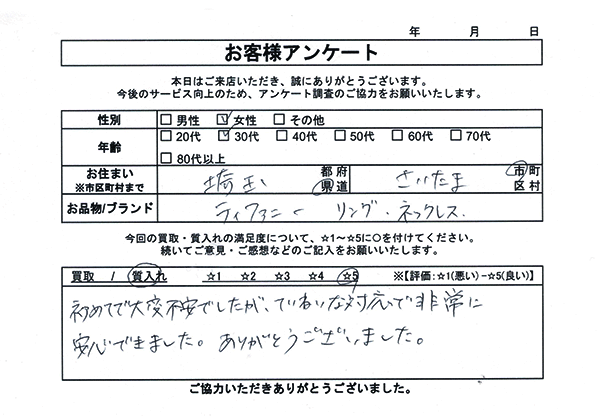 年 月 日
お客様アンケート
本日はご来店いただき、誠にありがとうございます。
今後のサービス向上のため、アンケート調査のご協力をお願いいたします。
性別 □ 男性 ☑ 女性 □ その他
年齢 □ 20代 ☑ 30代 □ 40代 □ 50代 □ 60代 □ 70代
□ 80代以上
お住まい ※市区町村まで 埼玉 都 府 県 道 さいたま 市 町 区 村
お品物/ブランド ティファニー リング・ネックレス.
今回の買取・質入れの満足度について、☆1～☆5に○を付けてください。
続いてご意見・ご感想などのご記入をお願いします。
買取 / 質入れ ☆1 ☆2 ☆3 ☆4 ☆5 ※【評価:☆1(悪い)−☆5(良い)】
初めてで大変不安でしたが、ていねいな対応で非常に
安心できました。ありがとうございました。
ご協力いただきありがとうございました。